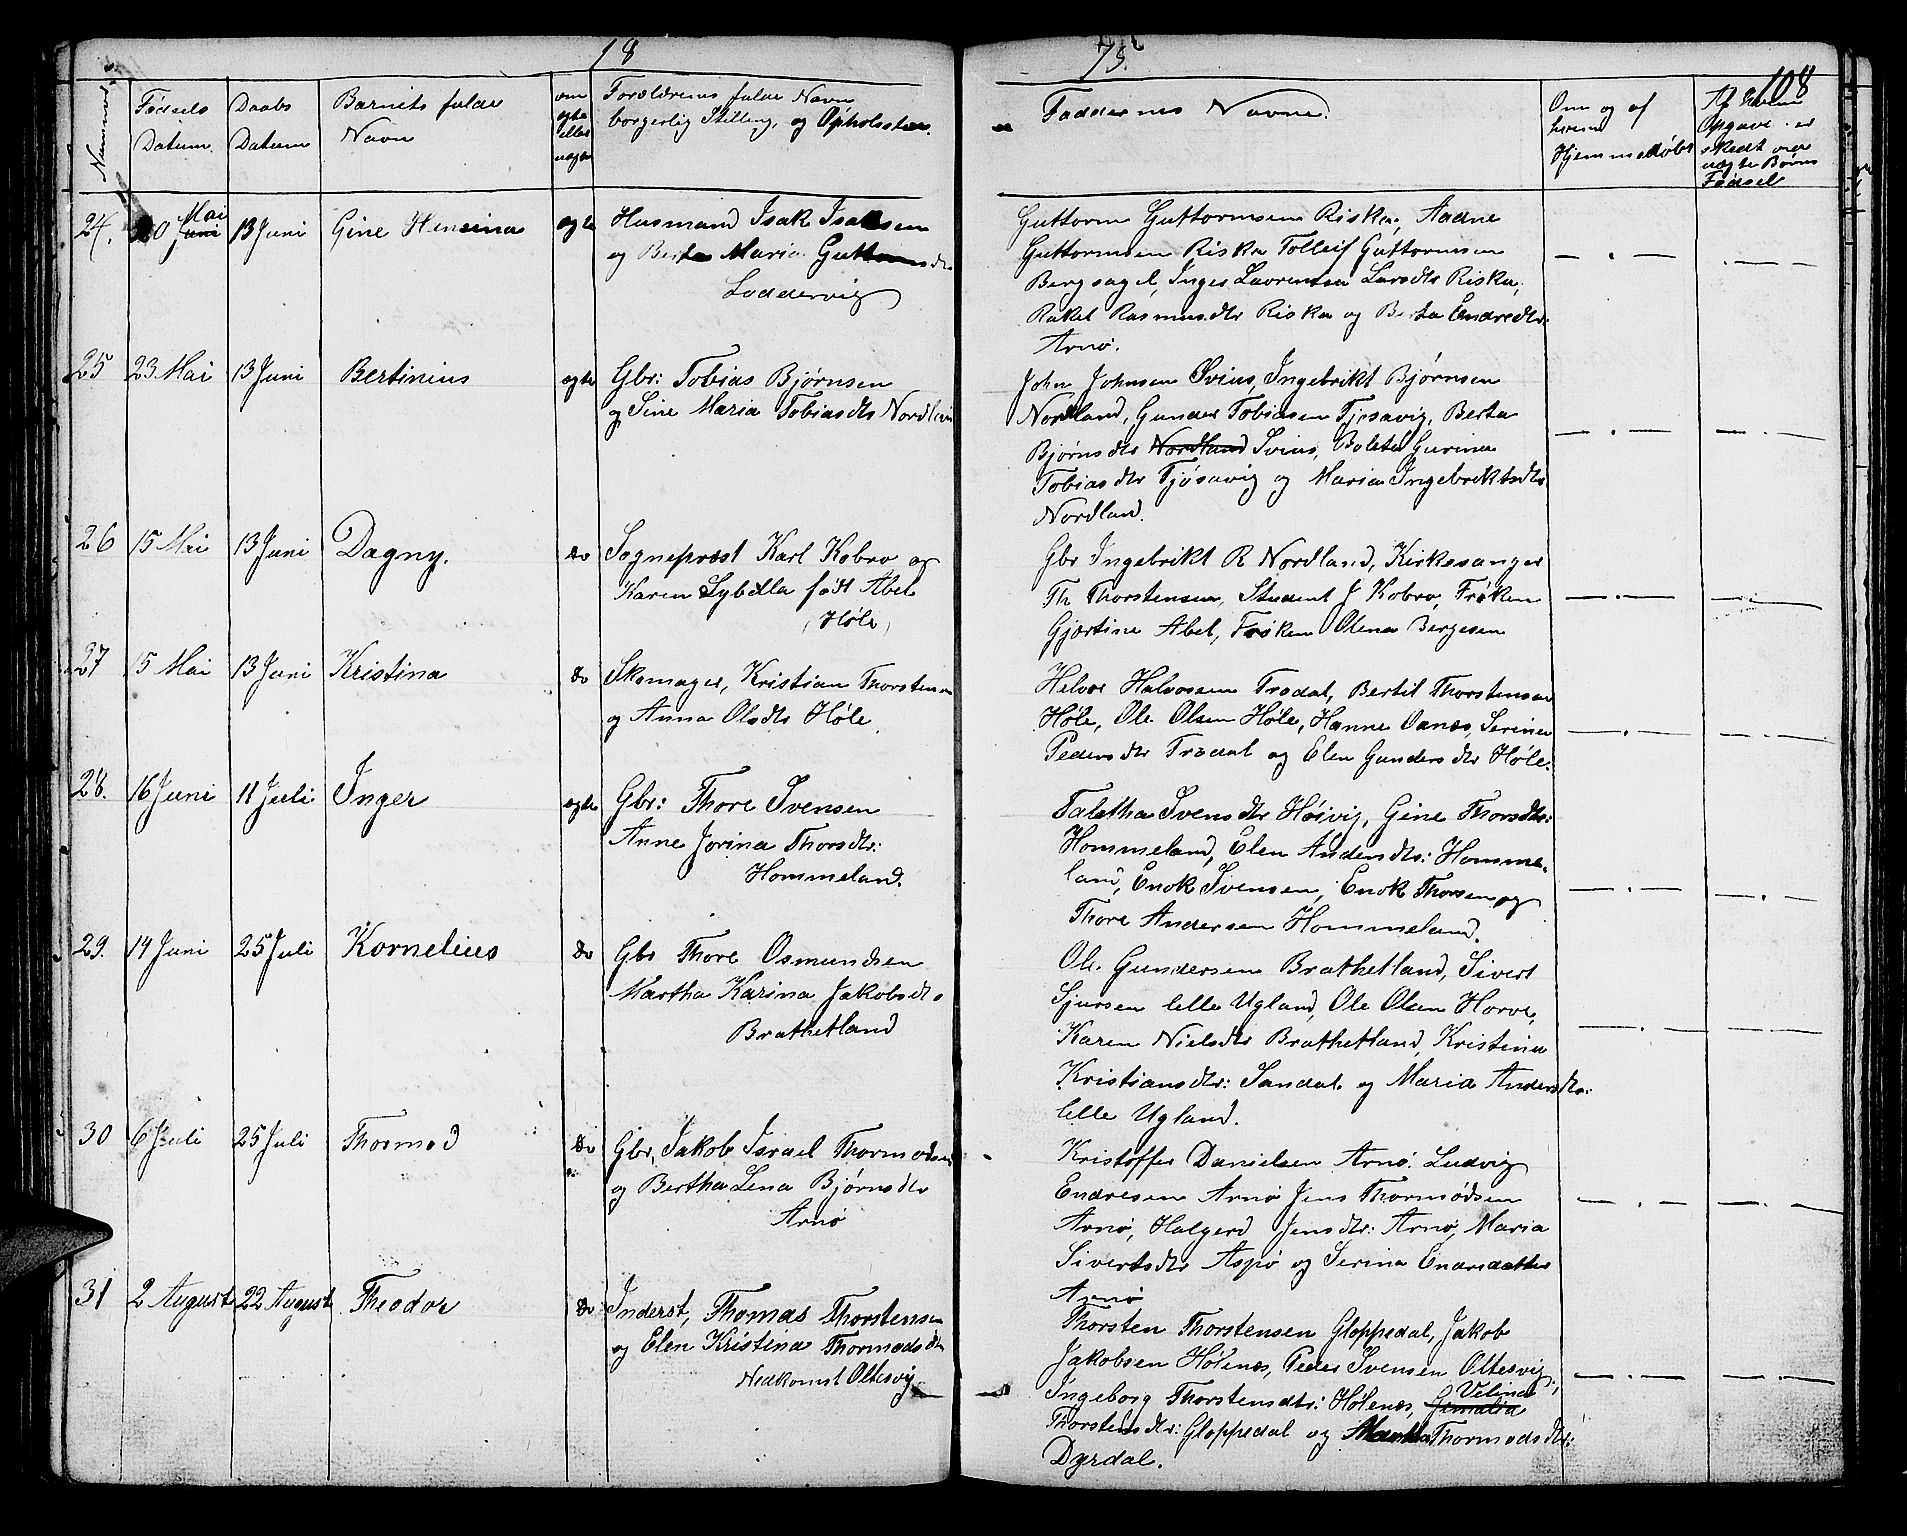 18
75.
108
Nummer
Fødsels
Datum
Daabs
Datum
Barnets fulde
Navn
om
ægte
eller
uægte
Forældrenes fulde Navn
borgerlig Stilling, og Opholssted.
Faddernes Navne.
Om og af
hvem
Hjemmedøbt
Af hvem
Opgave er
skedt ved
uægte Børns
Fødsel
24. 20 Mai Juni 13 Juni Gine Hensina ægte Husmand Isak Isaksen
og Berta Maria Guttormsdt
Loddervig
Guttorm Guttormsen Riska, Aadne
Guttormsen Riska Tolleif Guttormsen
Bergsagel, Inger Lavrentsa Larsdtr Riska,
Rakel Rasmusdtr Riska og Berta Endredtr.
Arnø.
25 23 Mai 13 Juni Bertinius ægte Gbr: Tobias Bjørnsen
og Sine Maria Tobiasdtr Nordland
John Johnsen Svius, Ingebrikt Bjørnsen
Nordland, Gunder Tobiasen Tjøsavig, Berta
Bjørnsdtr Nordland Svius, Bolette Gurina
Tobiasdtr Tjøsavig og Maria Ingebriktsdtr
Nordland.
26 15 Mai 13 Juni Dagny. do Sogneprest Karl Kobro og
Karen Sybilla født Abel
(Høle)
Gbr Ingebrikt R Nordland, Kirkesanger
Th Thorstensen, Student J Kobro, Frøken
Gjertine Abel, Frøken Olena Bergesen
27 15 Mai 13 Juni Kristina do Skomager, Kristian Thorstensen
og Anna Olsdtr Høle
Helvor Halvorsen Trodal, Bertil Thorstensen
Høle, Ole Olsen Høle, Hanne Oanes, Serina
Pedersdtr Trodal og Elen Gundersdtr Høle.
28. 16 Juni 11 Juli Inger ægte Gbr: Thore Svensen
Anne Jorina Thorsdtr:
Hommeland.
Taletha Svensdtr Høivig, Gine Thorsdtr:
Hommeland, Elen Andersdtr: Homme-
land, Enok Svensen, Enok Thorsen og
Thore Andersen Hommeland.
29. 14 Juni 25 Juli Kornelius do Gbr Thore Osmundsen
Martha Karina Jakobsdtr
Brathetland
Ole Gundersen Brathetland, Sivert
Sjursen lille Ugland, Ole Olsen Horve,
Karen Nielsdtr Brathetland, Kristina
Kristiansdtr: Sandal og Maria Andersdtr:
lille Ugland.
30 6 Juli 25 Juli Thormod do Gbr, Jakob Israel Thormodsen
og Bertha Lena Bjørnsdtr
Arnø
Kristoffer Danielsen Arnø. Ludvig
Endresen Arnø Jens Thormødsen
Arnø, Halgerd Jensdtr: Arnø, Maria
Sivertsdtr Aspø og Serina Endredatter
Arnø
31 2 August 22 August Theodor do Inderst, Thomas Thorstensen
og Elen Kristina Thormodsdtr
Nedkomst Oltesvig
Thorsten Thorstensen Gloppedal, Jakob
Jakobsen Hølenæs, Peder Svensen Oltesvig,
Ingeborg Thorstensdtr: Hølenæs, Gemalia Velina
Thorstensdtr: Gloppedal og Martha Thormodsdtr:
Dyrdal.